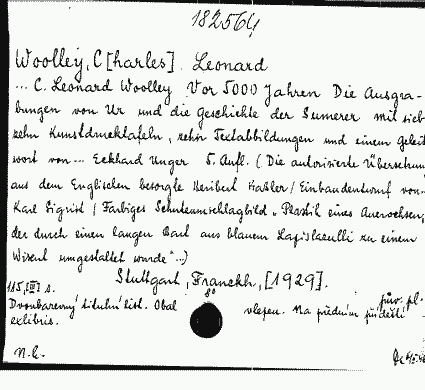 182564
Woolley, C[harles] Leonard
... C. Leonard Woolley Vor 5000 Jahren Die Ausgra-
bungen von Ur und die Geschichte der Sumerer mit sieb
zehn Kunstdrucktafeln, zehn Textabbildungen und einem Geleit
wort von ... Eckhard Unger 5. Aufl. (Die autorisierte Übersetzung
aus dem Englischen besorgte Heribert Hassler / Einbandentwurf von
Karl Sigrist / Farbiges Schutzumschlagbild „Plastik eines Auerochsen,
der durch einen langen Bart aus blauem Lapislazulli zu einem
Wisent umgestaltet wurde" ...)
Stuttgart, Franckh, [1929].
115, [III] s. 8° pův. pl.
Dvoubarevný titulní list. Obal vlepen. Na předním přídeští
exlibris.
N. k.